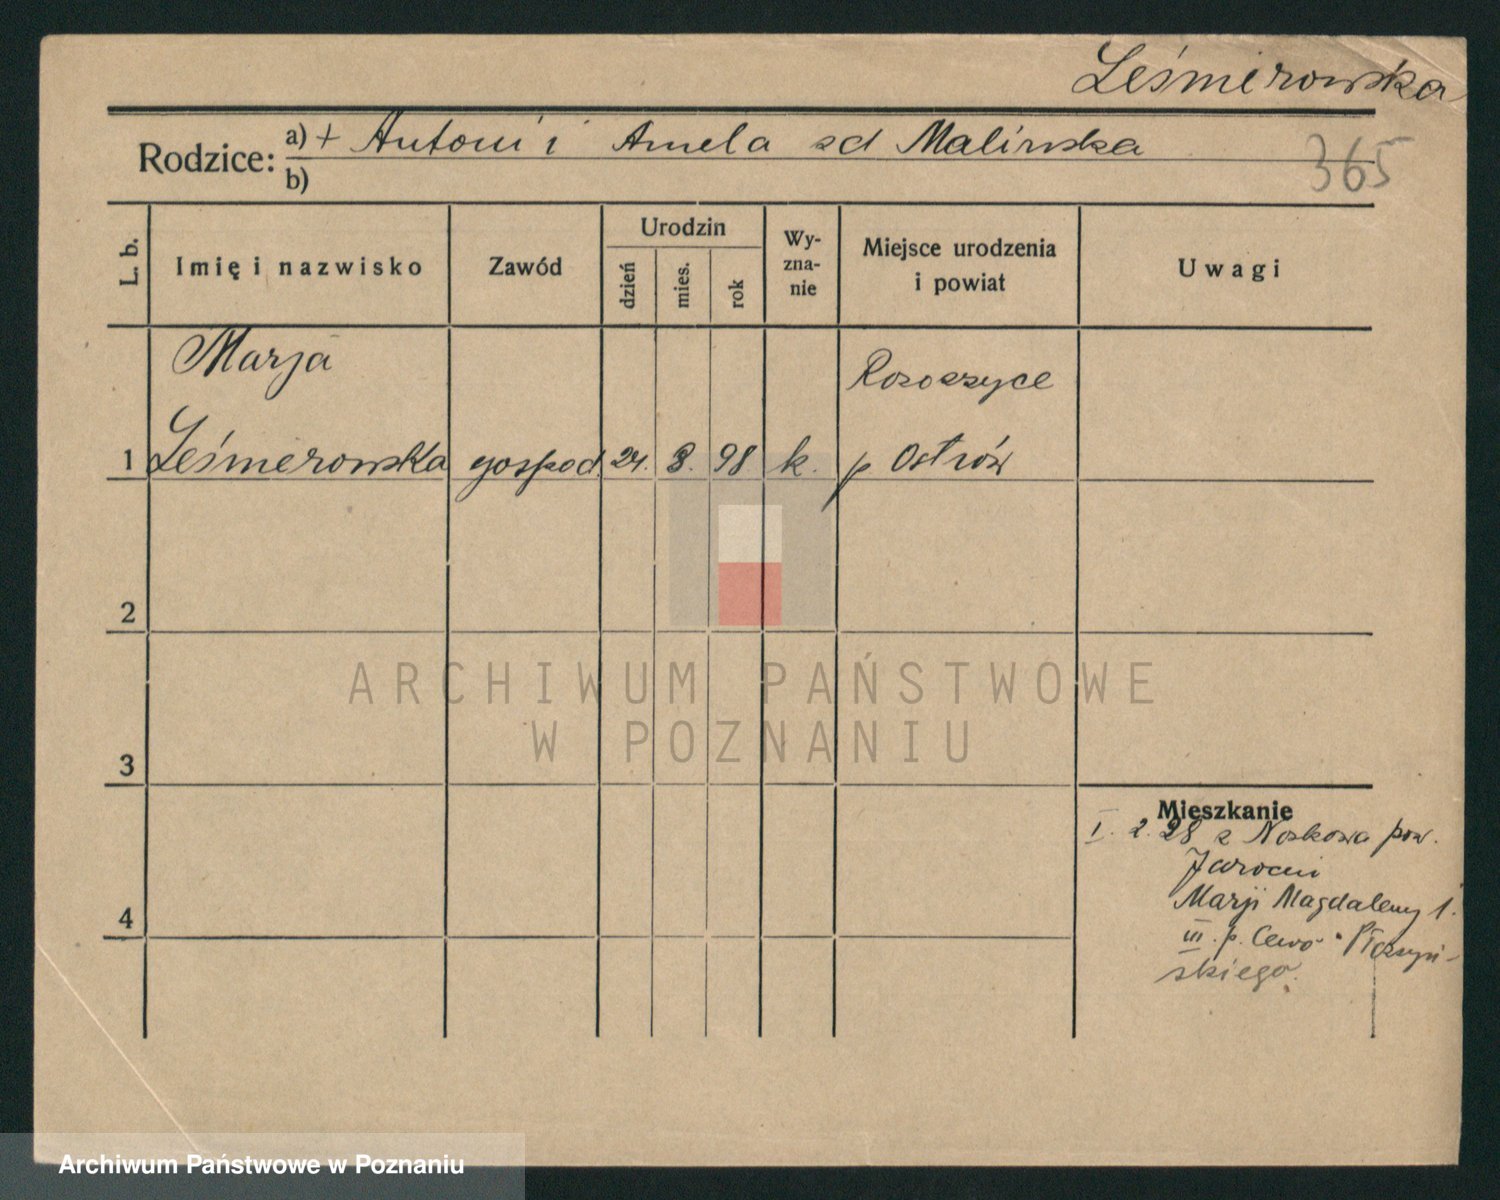 Leśmierowska
Rodzice: a) + Antoni i Amela zd Malińska
b)
365
L. b.
Imię i nazwisko
Zawód
Urodzin
dzień
mies.
rok
Wy-
zna-
nie
Miejsce urodzenia
i powiat
Uwagi
Marja
Rososzyce
1 Leśmierowska gospod. 24. 8. 98 k. p Ostrów
2
3
4
Mieszkanie
I. 2. 28 z Noskowa pow.
Jarocin
Marji Magdaleny 1.
III. p.
skiego.
ARCHIWUM PAŃSTWOWE
W POZNANIU
Archiwum Państwowe w Poznaniu